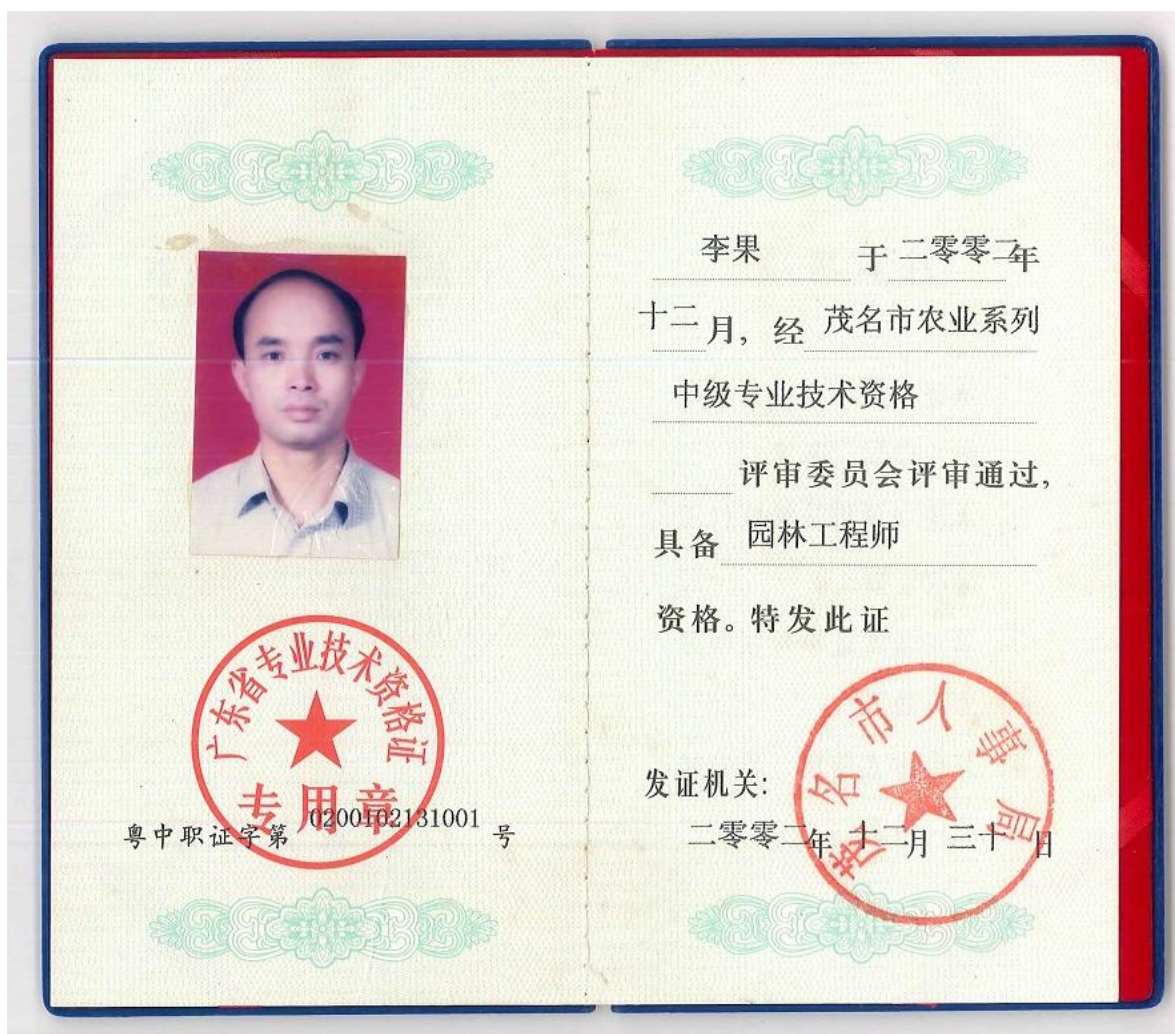 广东省专业技术资格证
专用章
粤中职证字第 0200102131001 号
李果 于 二零零二年
十二月, 经 茂名市农业系列
中级专业技术资格
评审委员会评审通过,
具备 园林工程师
资格。特发此证
茂名市人事局
发证机关:
二零零二年 十二月 三十 日